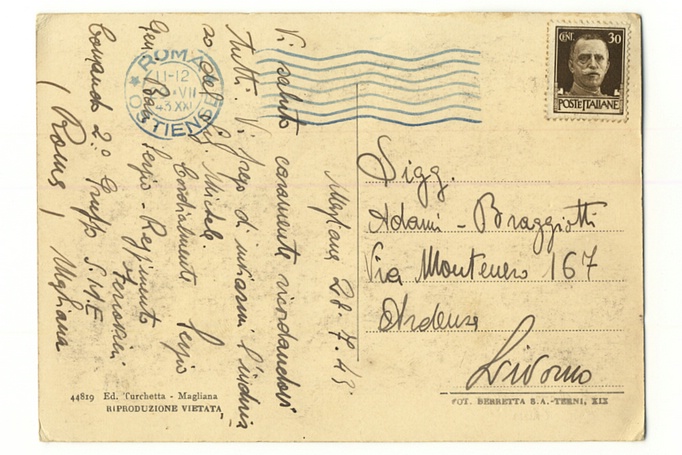 Magliana 28.7.43
Vi saluto caramente ricordandovi
tutti. Vi prego di inviarmi l'indiriz
zo del S. Michele.
Cordialmente Sergio
Gen Sergio - Reggimento
Ferrovieri
Comando 2º Gruppo S.M.E
(Roma) Magliana
ROMA
OSTIENSE
11-12
VII
43 XXI
CENT. 30
POSTE ITALIANE
Sigg.
Adami - Braggiotti
Via Montenero 167
Ardenza
Livorno
44819 Ed. Turchetta - Magliana
RIPRODUZIONE VIETATA
FOT. BERRETTA S.A.-TERNI, XIX